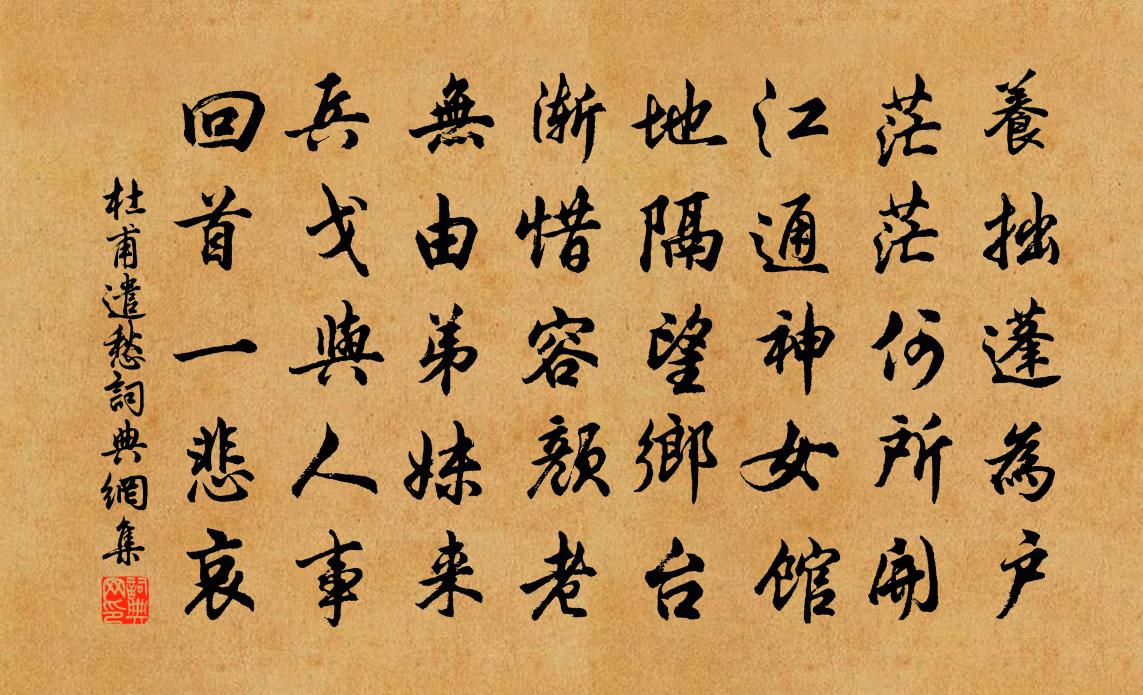 養拙蓬為戶
茫茫何所開
江通神女館
地隔望鄉台
渐惜容顔老
無由弟妹来
兵戈與人事
回首一悲哀
杜甫遣愁詞典網集
詞典网印